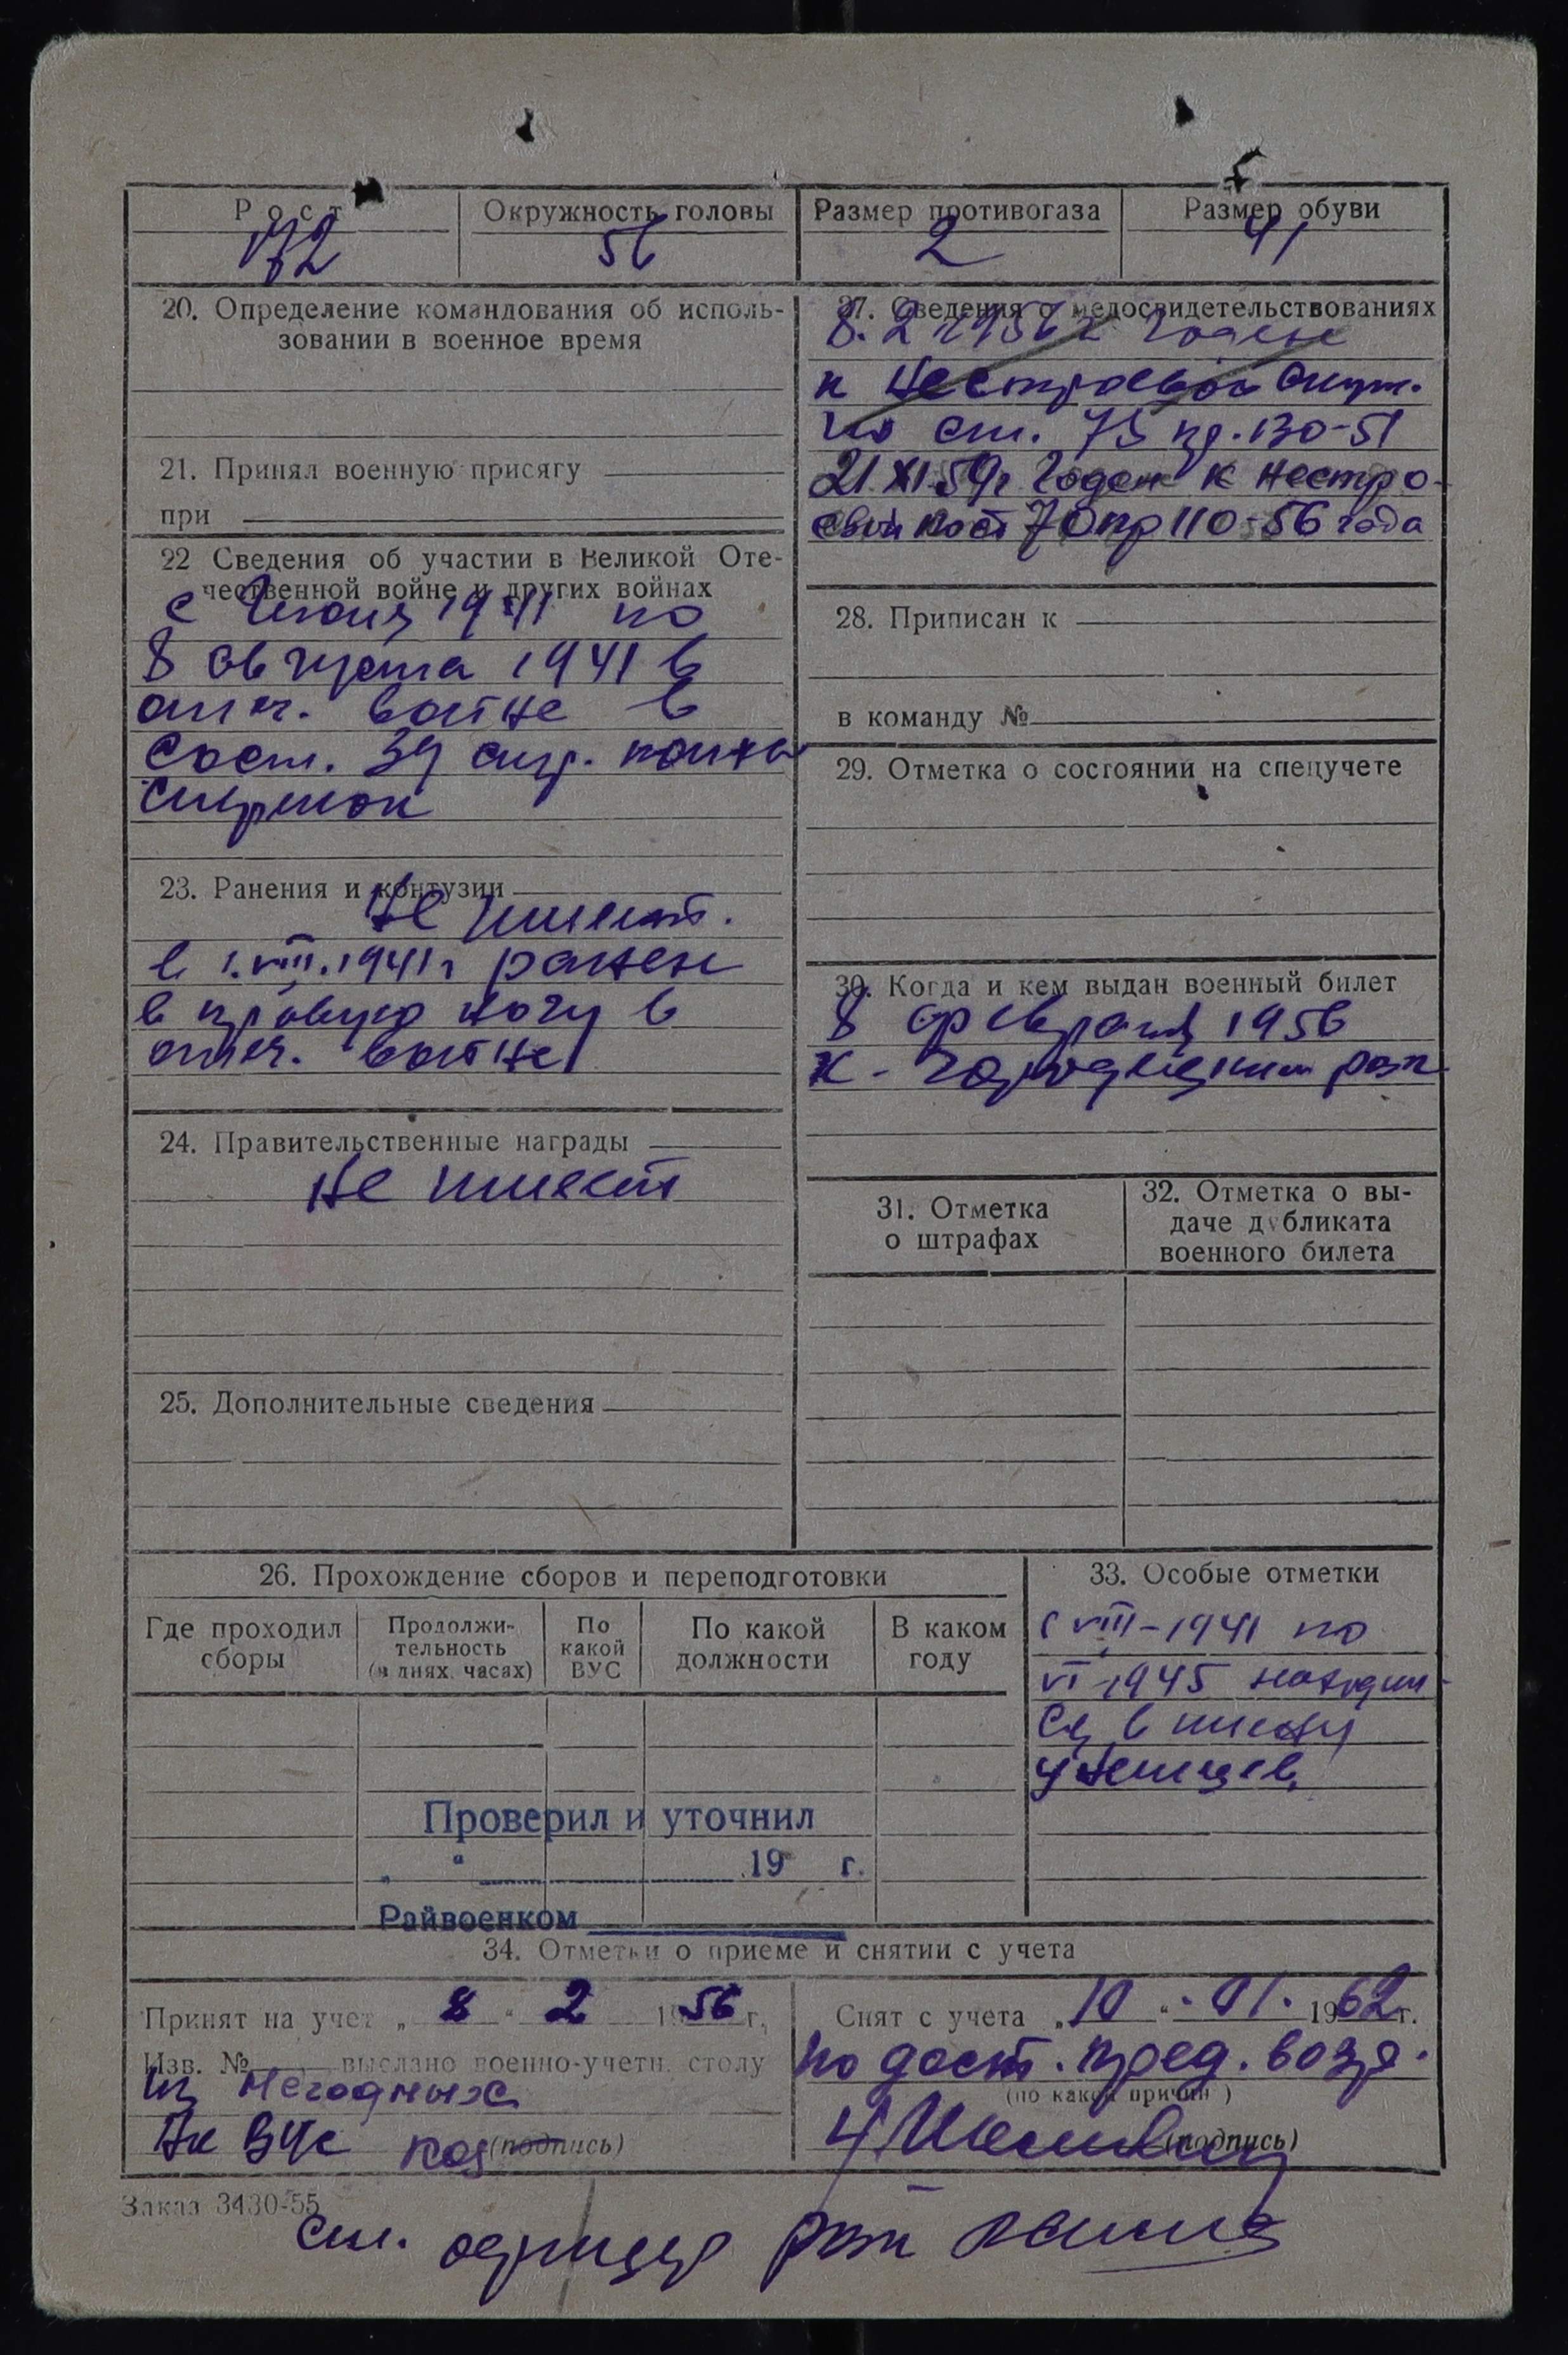 Рост
172
Окружность головы
56
Размер противогаза
2
Размер обуви
41
20. Определение командования об исполь-
зовании в военное время
21. Принял военную присягу
при
22 Сведения об участии в Великой Оте-
чественной войне и других войнах
с Июня 1941 по
8 августа 1941 в
отеч. войне в
сост. 39 стр. полка
стрелок
23. Ранения и контузии
Не имеет.
в 1.VIII.1941г ранен
в правую ногу в
отеч. войне
24. Правительственные награды
не имеет
25. Дополнительные сведения
27. Сведения о медосвидетельствованиях
8.2 1956 г годен
к нестроевой служ.
по ст. 75 пр. 130-51
21 XI 59г Годен к нестро-
евой по ст 70 пр 110-56 года
28. Приписан к
в команду №
29. Отметка о состоянии на спецучете
30. Когда и кем выдан военный билет
8 февраля 1956
К-Городищким рвк
31. Отметка
о штрафах
32. Отметка о вы-
даче дубликата
военного билета
26. Прохождение сборов и переподготовки
Где проходил
сборы
Продолжи-
тельность
(в днях, часах)
По
какой
ВУС
По какой
должности
В каком
году
33. Особые отметки
с VIII-1941 по
VI-1945 находил-
ся в плену
у немцев
Проверил и уточнил
„ “ 19 г.
Райвоенком
34. Отметки о приеме и снятии с учета
Принят на учет „ 8 “ 2 1956 г.
Изв. № выслано военно-учетн. столу
из негодных
(подпись)
Снят с учета „ 10 “ . 01. 1962 г.
по дост. пред. возр.
(по какой причин )
(подпись)
Заказ 3430-55